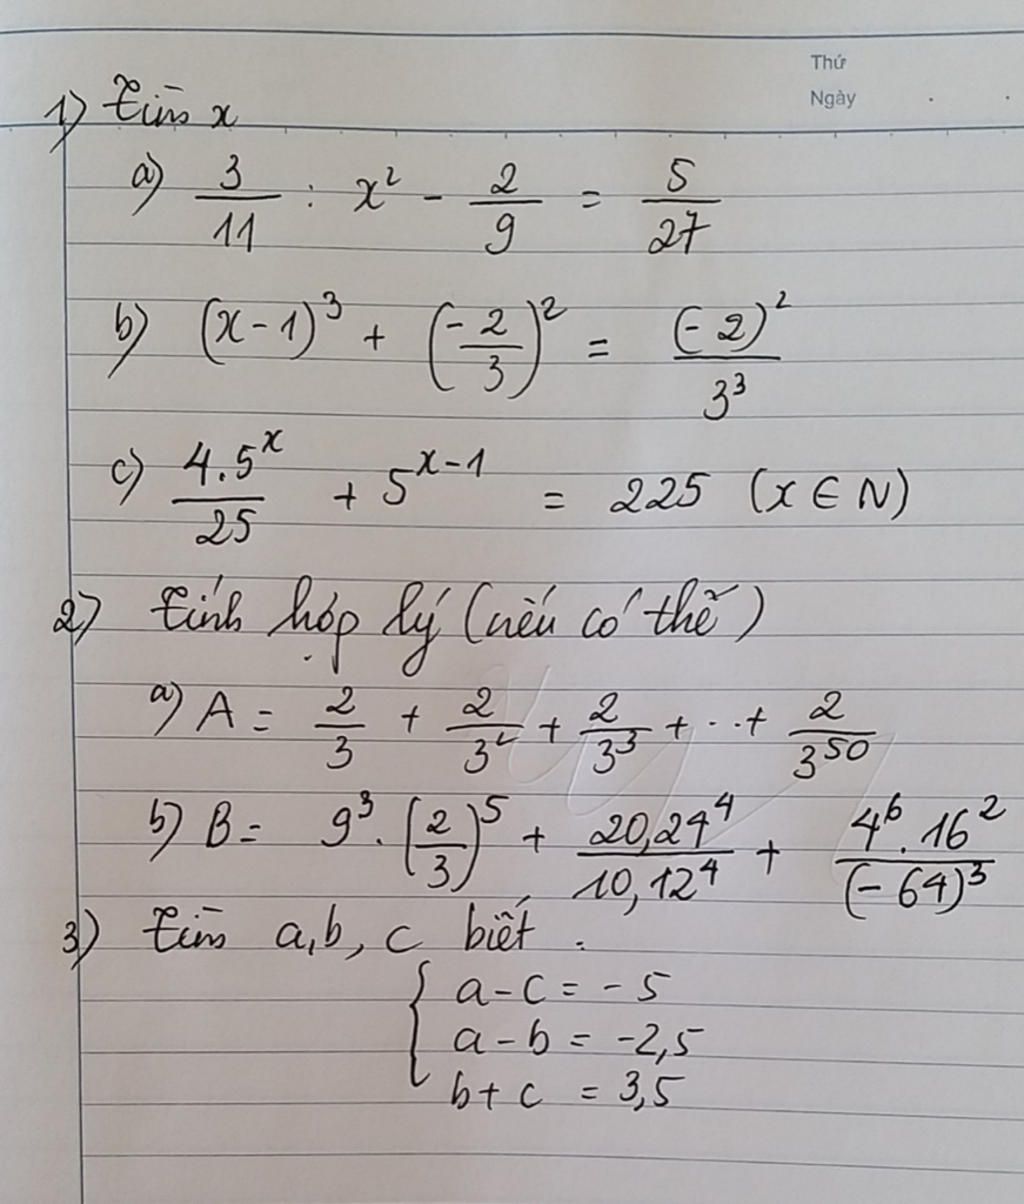 Thứ
Ngày
1) Tìm x
a) 3/11 : x² - 2/9 = 5/27
b) (x-1)³ + (-2/3)² = (-2)²/3³
c) 4.5ˣ/25 + 5ˣ⁻¹ = 225 (x ∈ N)
2) Tính hợp lý (nếu có thể)
a) A = 2/3 + 2/3² + 2/3³ + ... + 2/3⁵⁰
b) B = 9³ . (2/3)⁵ + 20,24⁴/10,12⁴ + 4⁶.16²/(-64)³
3) Tìm a,b,c biết :
a - c = -5
a - b = -2,5
b + c = 3,5